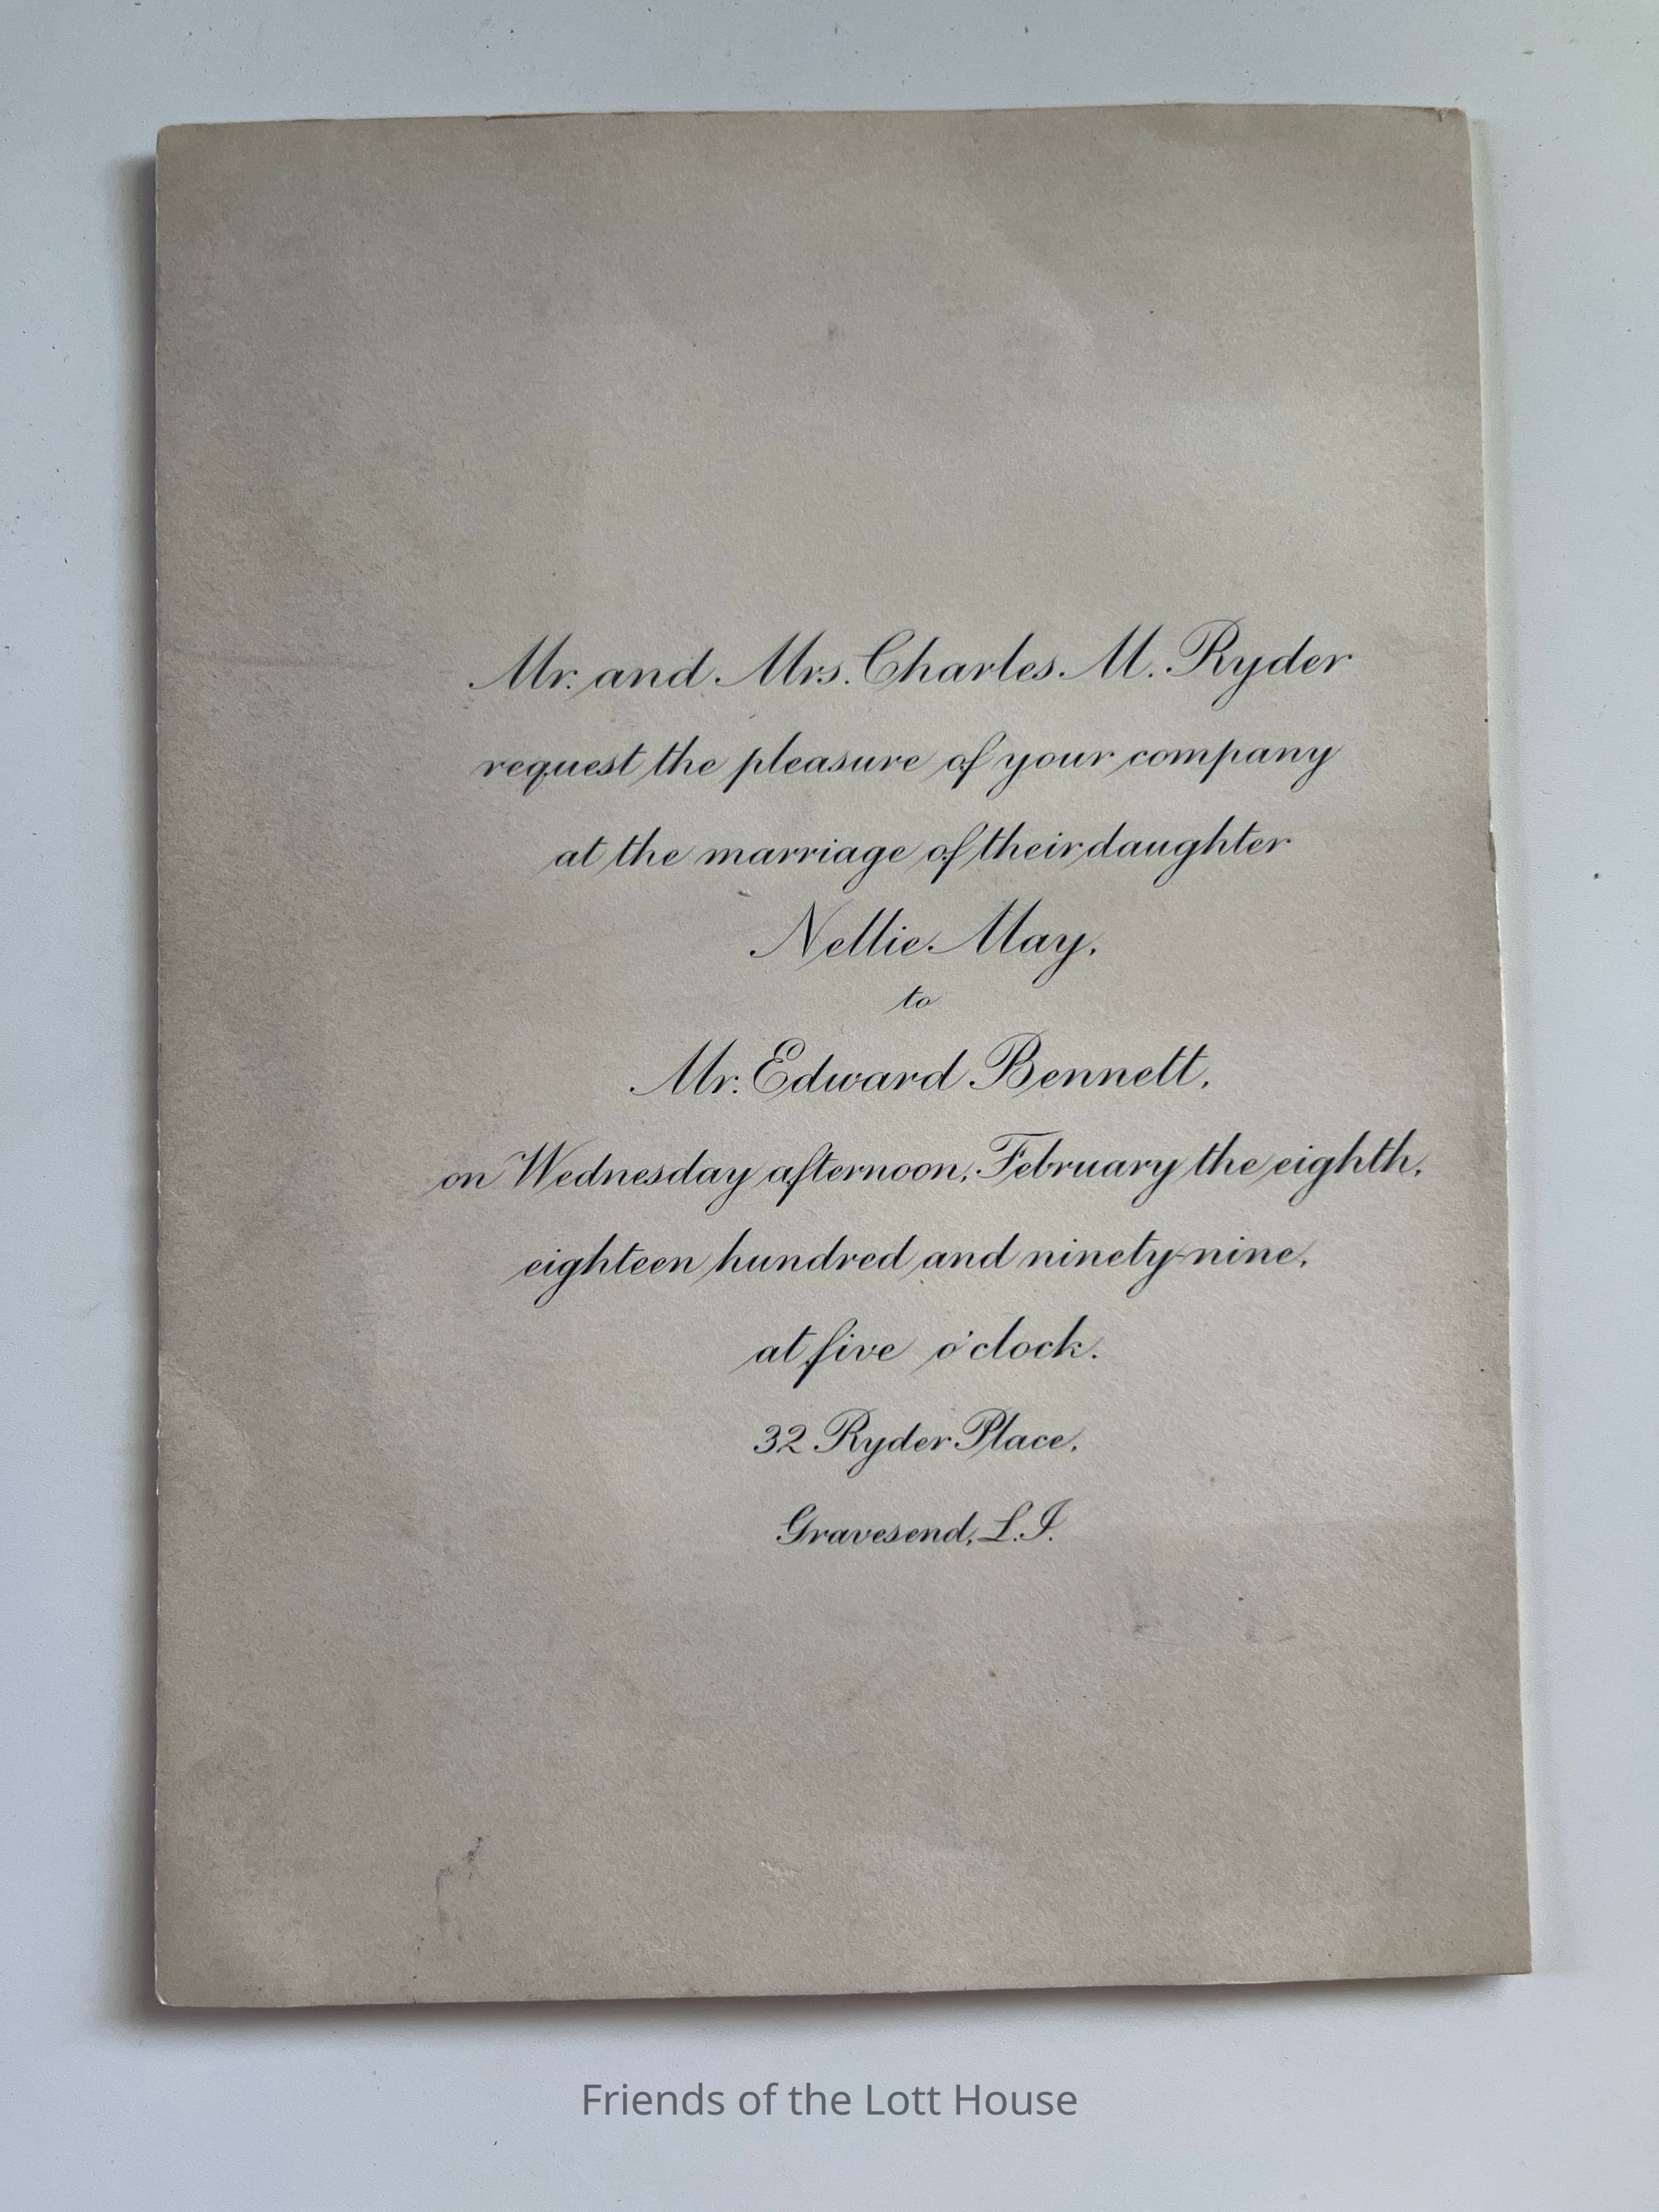 Mr. and Mrs. Charles M. Ryder
request the pleasure of your company
at the marriage of their daughter
Nellie May,
to
Mr. Edward Bennett,
on Wednesday afternoon, February the eighth,
eighteen hundred and ninety-nine,
at five o'clock.
32 Ryder Place,
Gravesend, L.I.
Friends of the Lott House